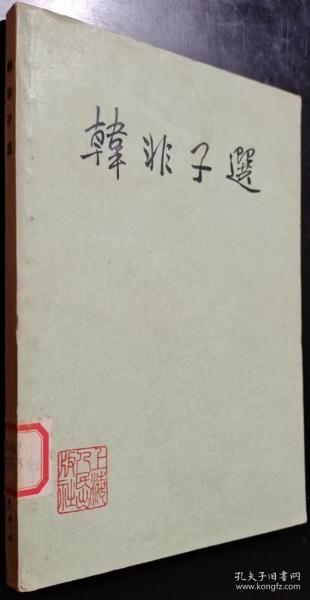 韓非子選
韓非子選
上海
人民
出
版社
孔夫子旧书网